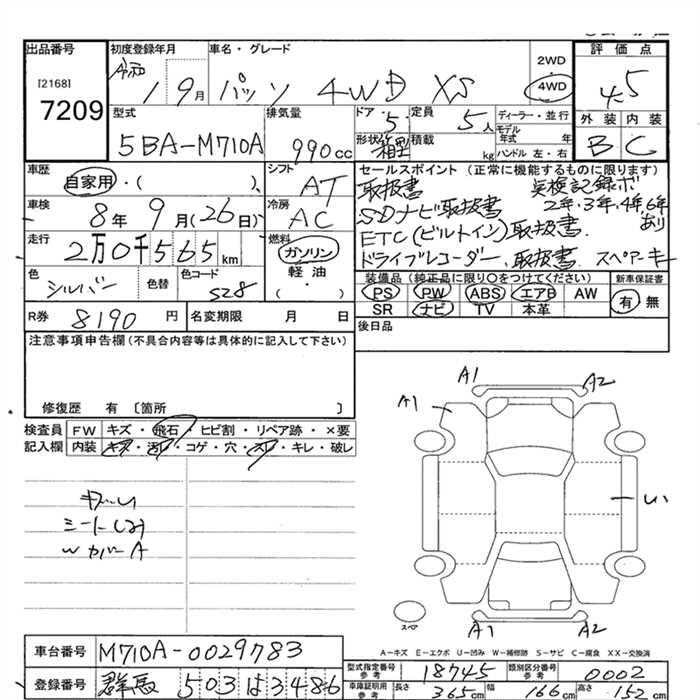 出品番号 初度登録年月 車名・グレード 評価点
[2168] 令和 2WD
7209 1 9月 パッソ 4WD XS 4WD 4.5
型式 排気量 ドア 5 定員 5人 ディーラー・並行 外装 内装
5BA-M710A 990cc 形状 箱型 積載 kg モデル年式 年 B C
ハンドル 左・右
車歴 自家用・( ) シフト AT セールスポイント(正常に機能するものに限ります)
取扱書 点検記録ボ
車検 8年 9月(26日) 冷房 AC SDナビ取扱書 2年.3年.4年.6年
あり
走行 2万0千565km 燃料 ガソリン ETC(ビルトイン)取扱書.
軽油 ドライブレコーダー.取扱書 スペアーキー
色 シルバー 色替 色コード S28 ・( ) 装備品(純正品に限り〇をつけてください) 新車保証書
PS PW ABS エアB AW 有 無
R券 8190円 名変期限 月 日 SR ナビ TV 本革
後日品
注意事項申告欄(不具合内容等は具体的に記入して下さい)
修復歴 有 〔箇所 〕
検査員 FW キズ・飛石・ヒビ割・リペア跡・×要
記入欄 内装 キズ・汚レ・コゲ・穴・スレ・キレ・破レ
A1 A2
A1
シートしみ
WカバーA
スペア
A1 A2
A-キズ E-エクボ U-凹み W-補修跡 S-サビ C-腐食 XX-交換済
車台番号 M710A-0029783
型式指定番号 参考 18745 類別区分番号 参考 0002
登録番号 群馬 503は3486
車庫証明用 参考 長さ 365cm 幅 166cm 高さ 152cm